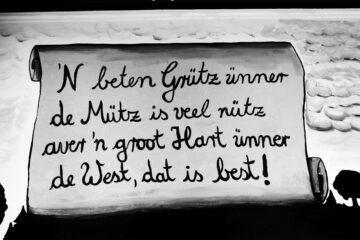 'N beten Grütz ünner
de Mütz is veel nütz
aver 'n groot Hart ünner
de West, dat is best!